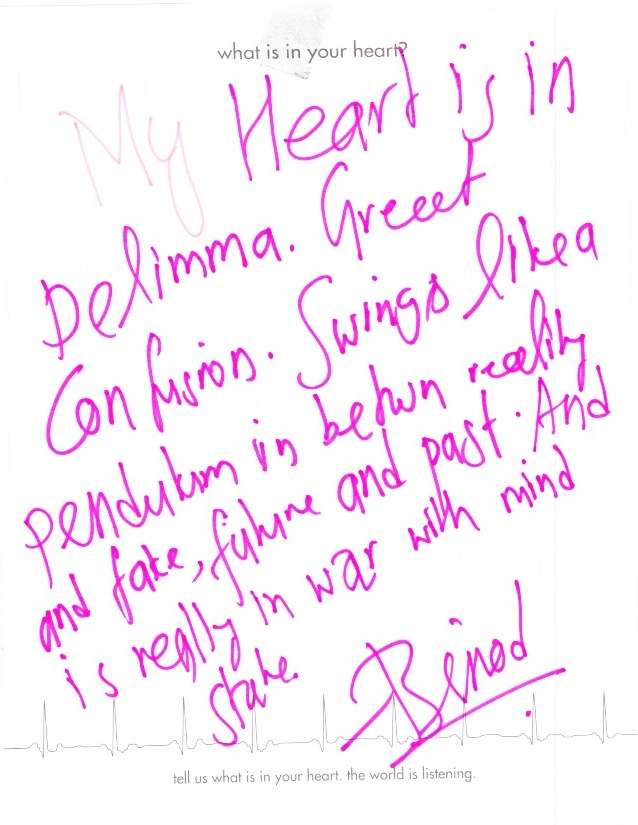 what is in your heart?
My Heart is in
Delimma. Greeet
Confusion. Swings like a
pendulum in betwn reality
and fake, future and past. And
is really in war with mind
state.
Binod
tell us what is in your heart. the world is listening.